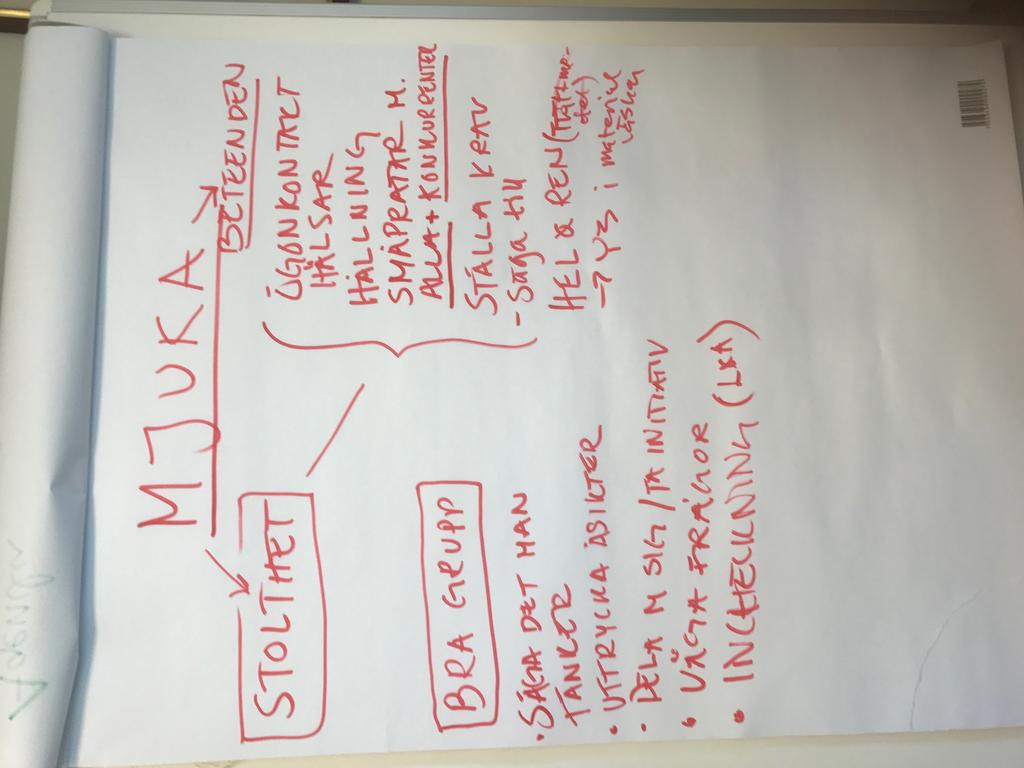 MJUKA
BETEENDEN
STOLTHET
ÖGONKONTAKT
HÄLSAR
HÅLLNING
SMÅPRATAR M.
ALLA + KONKURRENTER
STÄLLA KRAV
- Säga till
HEL & REN
→ i materiel
BRA GRUPP
• SÄGA DET MAN
TÄNKER
• UTTRYCKA ÅSIKTER
• DELA M SIG / TA INITIATIV
• VÅGA FRÅGOR
• INCHECKNING